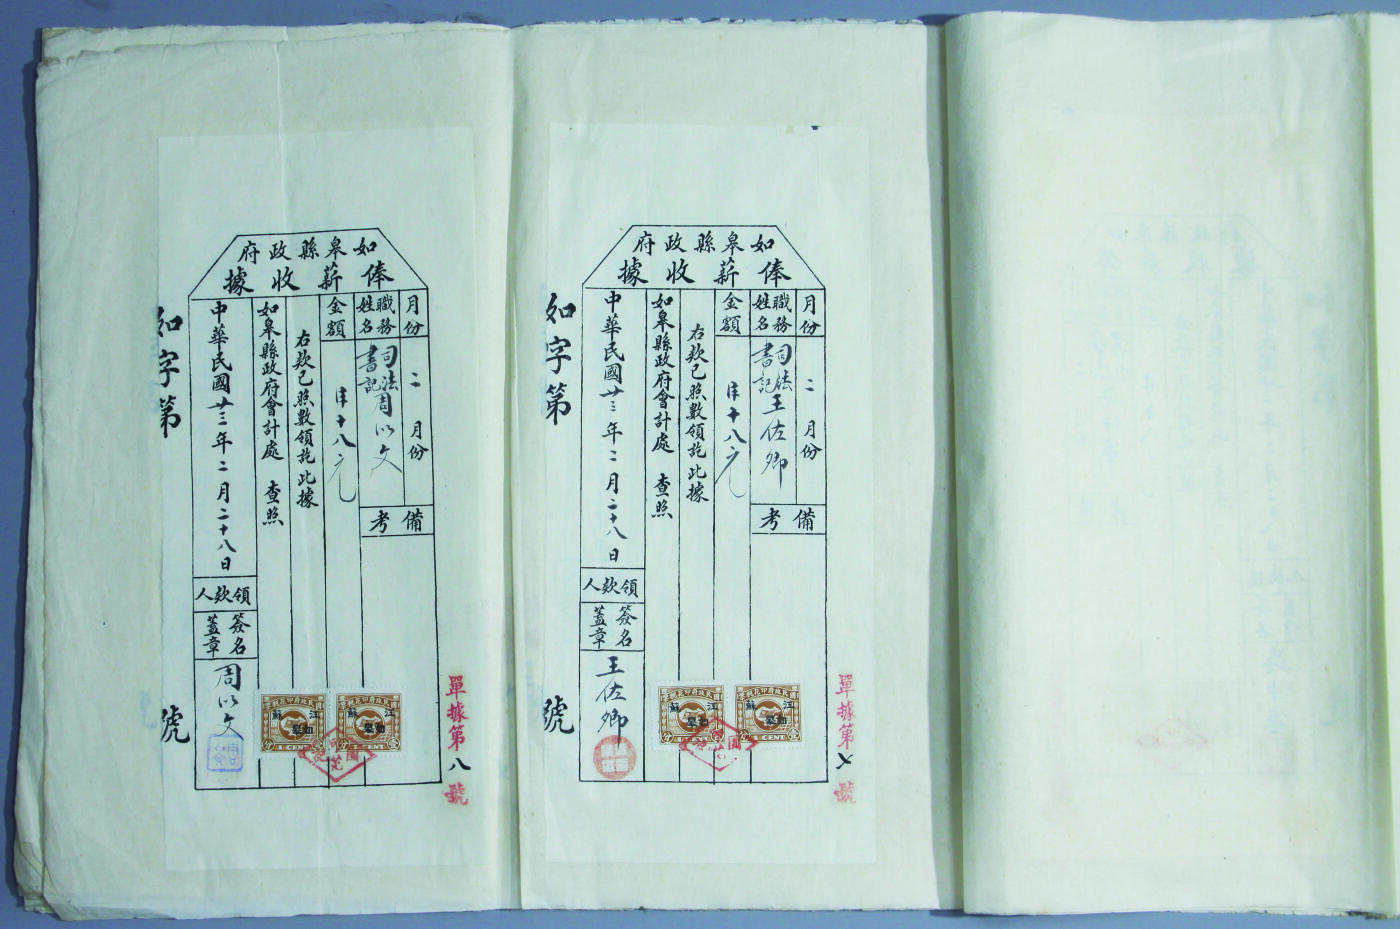 如皋縣政府
俸薪收據
月份
二月份
備考
職務
姓名
司法
書記
王佐卿
金額
洋十八元
右款已照數領訖此據
如皋縣政府會計處 查照
中華民國廿三年二月二十八日
領款人
簽名
蓋章
王佐卿
如字第 號
單據第七號
江蘇
如皋
1 CENT
江蘇
如皋
1 CENT
如皋縣政府
俸薪收據
月份
二月份
備考
職務
姓名
司法
書記
周以文
金額
洋十八元
右款已照數領訖此據
如皋縣政府會計處 查照
中華民國廿三年二月二十八日
領款人
簽名
蓋章
周以文
如字第 號
單據第八號
江蘇
如皋
1 CENT
江蘇
如皋
1 CENT